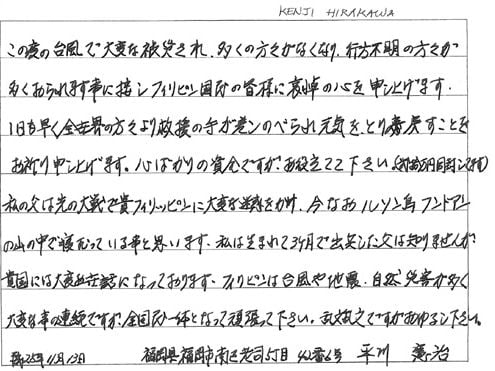 KENJI HIRAKAWA
この度の台風で大変な被災され、多くの方々がなくなり、行方不明の方々が
多くおられます事に接しフィリピン国民の皆様に哀悼の心を申し上げます。
1日も早く全世界の方々より救援の手が差しのべられ元気をとり戻すことを
お祈り申し上げます。心ばかりの資金ですが、お役立て下さい。
私の父は先の大戦で貴フィリッピンに大変な迷惑をかけ、今なおルソン島
の山の中で寝むっている事と思います。私は生まれて3ヶ月で出兵した父は知りませんが
貴国には大変お世話になっております。フィリピンは台風や地震、自然災害が多く
大変な事の連続ですが、全国民一体となって頑張って下さい。乱文乱文ですがおゆるし下さい。
平成25年11月13日 福岡県福岡市南区老司5丁目 平川 憲治